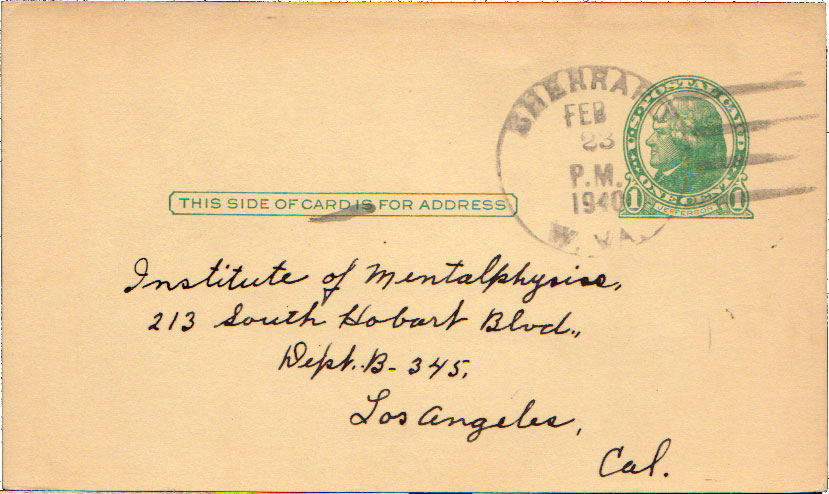 FEB
23
P.M.
1940
W. VA.
U.S. POSTAL CARD
ONE CENT
1 JEFFERSON 1
THIS SIDE OF CARD IS FOR ADDRESS
Institute of Mentalphysics,
213 South Hobart Blvd.,
Dept. B-345,
Los Angeles,
Cal.